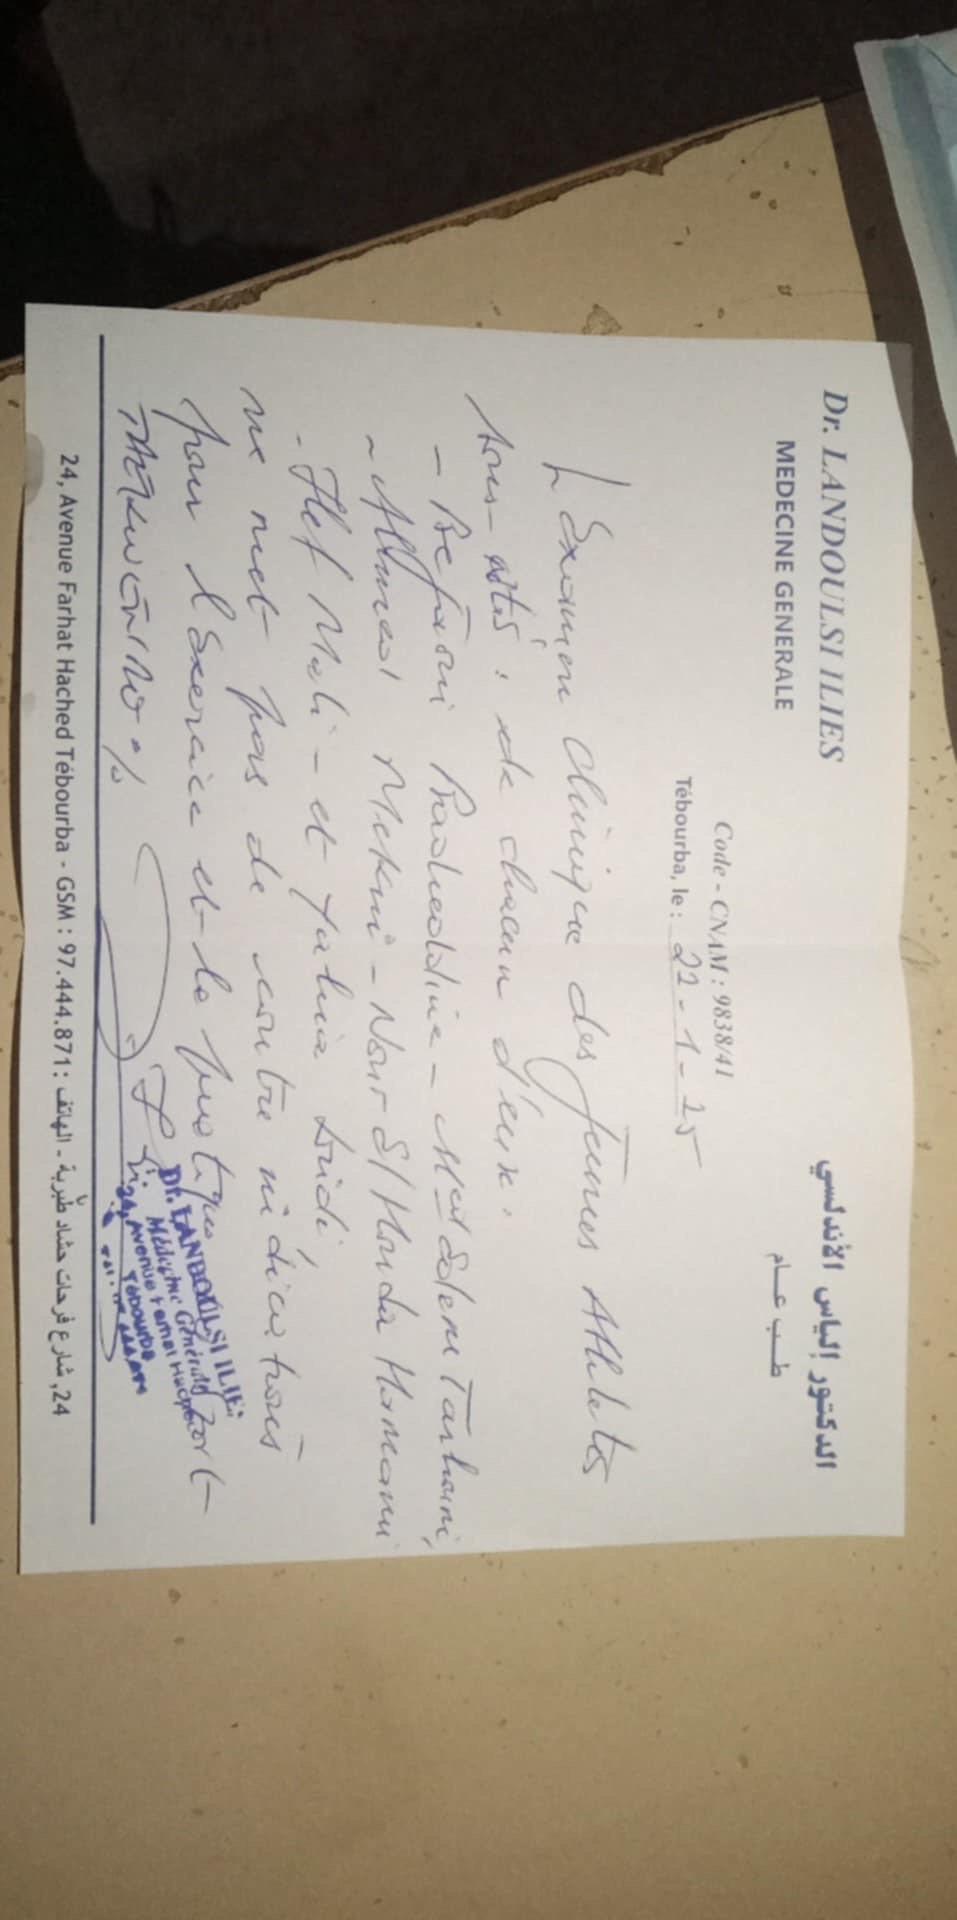 Dr. LANDOULSI ILIES
MEDECINE GENERALE
الدكتور إلياس الأندلسي
طب عام
Code - CNAM : 9838/41
Tébourba, le : 22 - 1 - 25
L'Examen Clinique des jeunes Athletes
sous- : de chacun d'eux.
- Bejaoui Badreddine - Med Salem Tarhouni,
- Ahmed Mekni - Nour El Houda Hammami
- Mali - et Yahia Sridi
ne met pas de contre indications
pour l'Exercice et la pratique
24, Avenue Farhat Hached Tébourba - GSM : 97.444.871 : الهاتف - 24, شارع فرحات حشاد طبربة
Dr. LANDOULSI ILIES
Médecine Générale
24, Avenue Farhat Hached
Tébourba